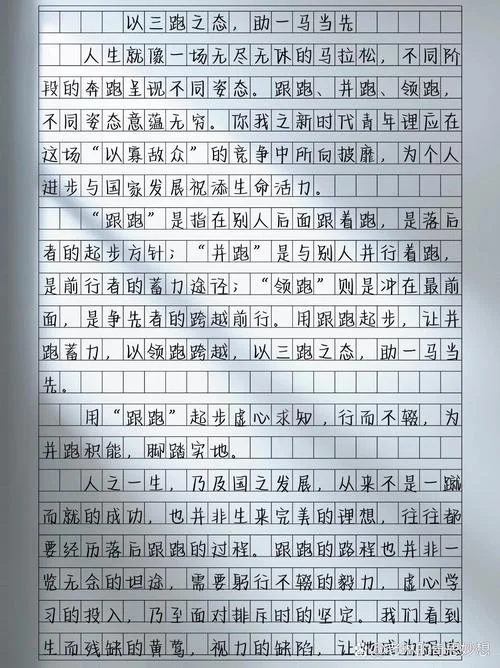 以三跑之态，助一马当先
人生就像一场无尽无休的马拉松，不同阶
段的奔跑呈现不同姿态。跟跑、并跑、领跑，
不同姿态意蕴无穷。你我之新时代青年理应在
这场“以寡敌众”的竞争中所向披靡，为个人
进步与国家发展祝添生命活力。
“跟跑”是指在别人后面跟着跑，是落后
者的起步方针；“并跑”是与别人并行着跑，
是前行者的蓄力途径；“领跑”则是冲在最前
面，是争先者的跨越前行。用跟跑起步，让并
跑蓄力，以领跑跨越，以三跑之态，助一马当
先。
用“跟跑”起步虚心求知，行而不辍，为
并跑积能，脚踏实地。
人之一生，乃及国之发展，从来不是一蹴
而就的成功，也并非生来完美的理想，往往都
要经历落后跟跑的过程。跟跑的路程也并非一
览无余的坦途，需要躬行不辍的毅力，虚心学
习的投入，乃至面对排斥时的坚定。我们看到
生而残缺的黄莺，视力的缺陷，让她成为